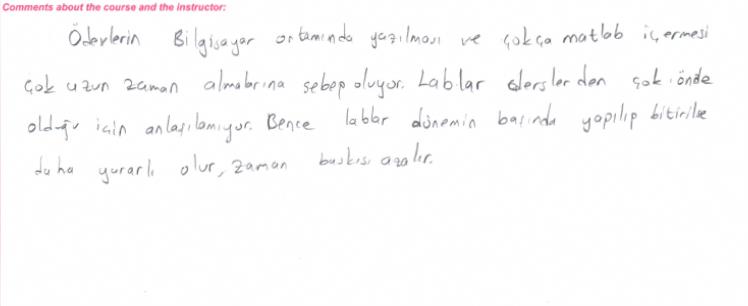 Comments about the course and the instructor:
Ödevlerin Bilgisayar ortamında yazılması ve çokça matlab içermesi
çok uzun zaman almalarına sebep oluyor. Lablar derslerden çok önde
olduğu için anlaşılamıyor. Bence lablar dönemin başında yapılıp bitirilse
daha yararlı olur, zaman baskısı azalır.